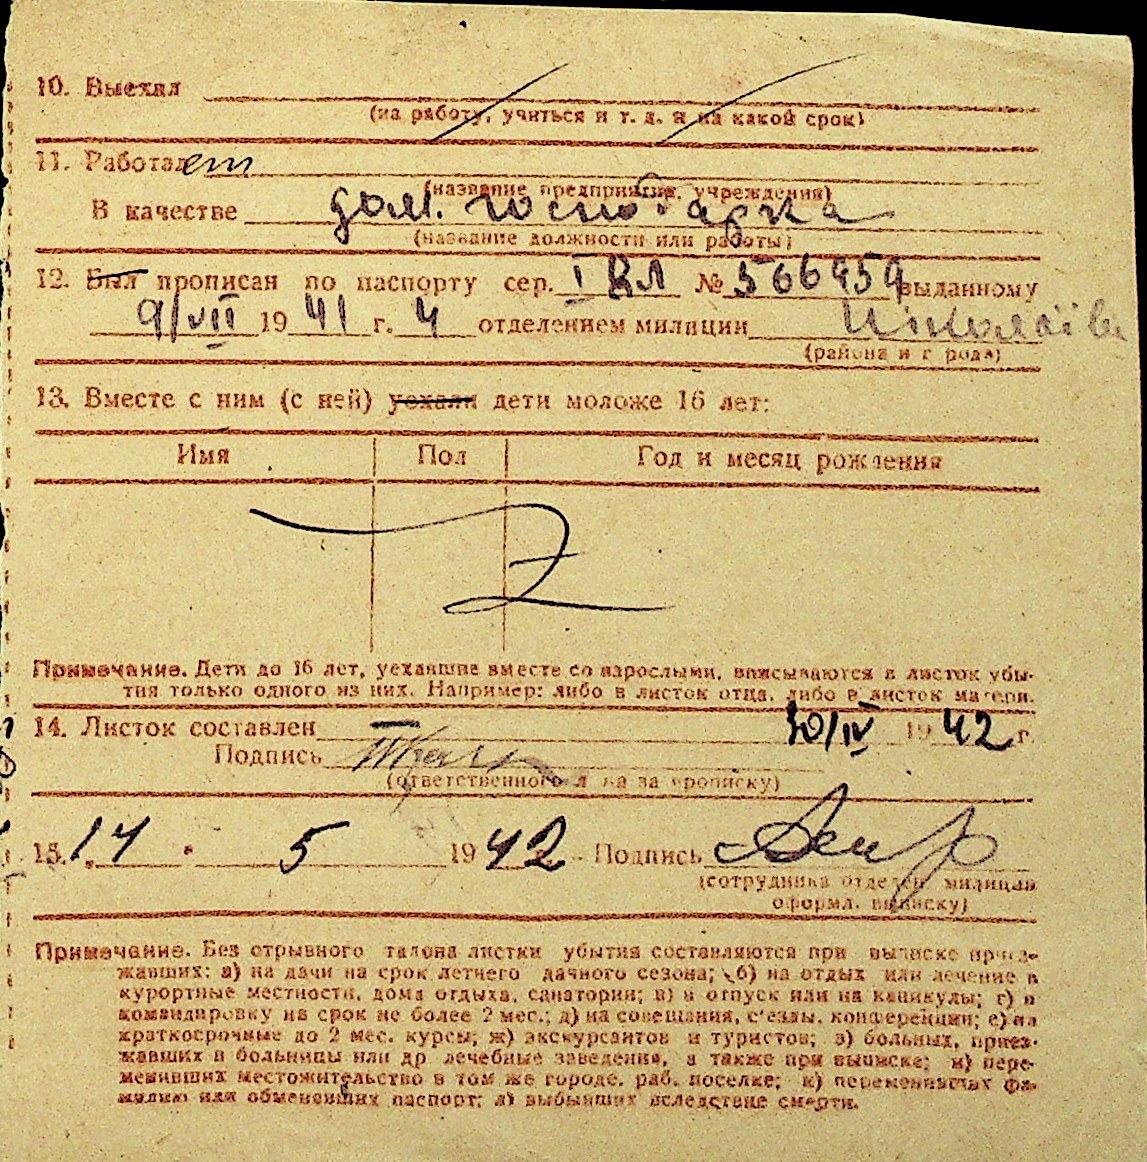 10. Выехал
(на работу, учиться и т. д. и на какой срок)
11. Работает
(название предприятия, учреждения)
В качестве дом. господарка
(название должности или работы)
12. Был прописан по паспорту сер. I ВЛ № 566959 выданному
9/VII 1941 г. 4 отделением милиции Николаїв
(района и города)
13. Вместе с ним (с ней) уехали дети моложе 16 лет:
Имя Пол Год и месяц рождения
Примечание. Дети до 16 лет, уехавшие вместе со взрослыми, вписываются в листок убы-
тия только одного из них. Например: либо в листок отца, либо в листок матери.
14. Листок составлен 30/IV 1942 г.
Подпись
(ответственного лица за прописку)
15. 14 5 1942 Подпись
(сотрудника отделен. милиции
оформл. выписку)
Примечание. Без отрывного талона листки убытия составляются при выписке приез-
жавших: а) на дачи на срок летнего дачного сезона; б) на отдых или лечение в
курортные местности, дома отдыха, санатории; в) в отпуск или на каникулы; г) в
командировку на срок не более 2 мес.; д) на совещания, с'езды, конференции; е) на
краткосрочные до 2 мес. курсы; ж) экскурсантов и туристов; з) больных, приез-
жавших в больницы или др лечебные заведения, а также при выписке; и) пере-
менивших местожительство в том же городе, раб. поселке; к) переменивших фа-
милию или обменевших паспорт; л) выбывших вследствие смерти.